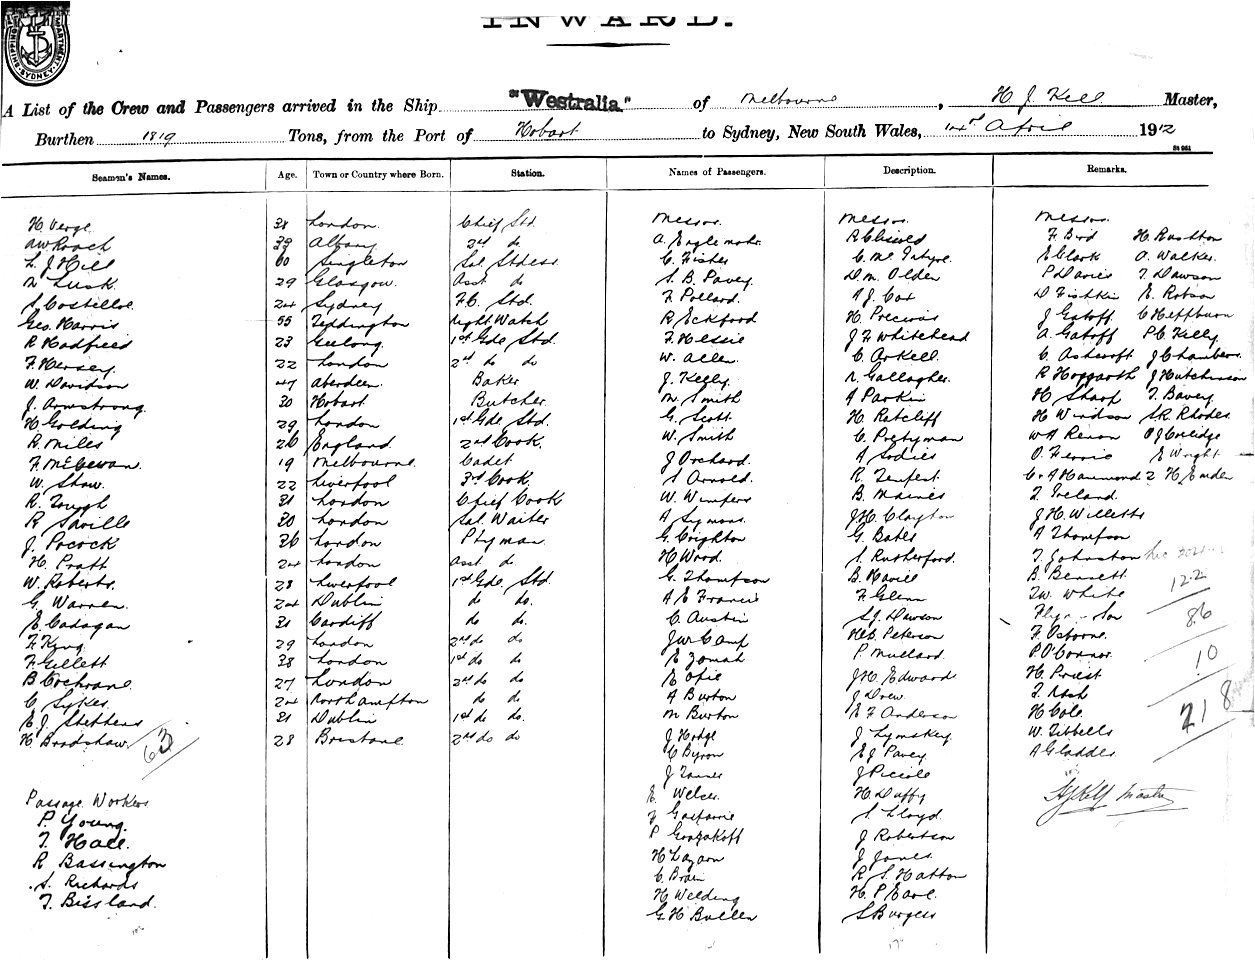 INWARD.
SHIPPING DEPARTMENT SYDNEY
A List of the Crew and Passengers arrived in the Ship "Westralia" of Melbourne, H J Kell Master,
Burthen 1819 Tons, from the Port of Hobart to Sydney, New South Wales, April 1912
Seamen's Names. Age. Town or Country where Born. Station. Names of Passengers. Description. Remarks.
H Verge 38 London Chief Std. Messrs. Messrs. Messrs.
AW Roach 39 Albany 2nd do A. Englemohr R Cliseld F. Bird H. Rushton
L. J Hill 60 Singleton Sal. Stdess C. Fisher C. Mc Intyre E Clark A. Walker
N Lusk 29 Glasgow Asst do S. B. Pavey D. M. Olden P Davies T. Dawson
S Costilloe 24 Sydney F.C. Std. F. Pollard A J. Cox D Fishkin E. Robson
Geo. Harris 55 Teddington Night Watch R Eckford H. Precious J Gatoff C Heffburn
R Hadfield 23 Geelong 1st Gde Std. F. Hessie J F Whitehead A. Gatoff P.C. Kelly
F. Hersey 22 London 2nd do do W. Allen C. Arkell C. Ashcroft J Chambers
W. Davidson 47 Aberdeen Baker J. Kelly N. Gallagher R Hoggarth J Hutchinson
J. Armstrong 30 Hobart Butcher M. Smith A Parkin H Sharp T. Bavey
H Golding 29 London 1st Gde Std. G. Scott H. Ratcliff H Windson S.R. Rhodes
R Miles 26 England 2nd Cook W. Smith C. Pretyman WA Renon O J Colidge
F. McCowan 19 Melbourne Cadet J Orchard A Sodies O. Ferrie E Wright
W. Shaw 22 Liverpool 3rd Cook S Arnold R. Tempest C & A Hammond 2 H Emden
R. Tough 31 London Chief Cook W. Wimpers B. Maines T Ireland
R Saville 30 London Sal. Waiter A Symons J.H. Clayton J H. Willetts
J. Pocock 36 London Ptyman G. Crighton G. Bates A Thompson
H. Pratt 24 London Asst do H Wood S. Rutherford. T Johnston
W. Roberts 28 Liverpool 1st Gde. Std. G. Thompson B. Havill B. Bennett 122
G. Warren 24 Dublin do do. A E Francis F. Glenn T.W. White
E. Cadogan 31 Cardiff do do. C. Austin S.J. Dawson 86
F. King 29 London 2nd do do J W Camp H.C. Peterson F. Osborne
F. Gillett 38 London 1st do do E Zomah P. Mullard P O'Connor 10
B Cochrane 27 London 2nd do do E Opie J.H. Edwards H. Priest
C Sykes 24 Northampton do do A Burton J Drew T. Nash
E. J. Stephens 31 Dublin 1st do do. M Burton E F Anderson H Cole 218
H. Bradshaw 28 Brisbane 2nd do do J Hodge J Lymskey W. Tibbells
63 C Byron E J Pavey A Gladder
J Tanner J Piccole
Passage Workers E. Welser H Duffy H J Kell Master
P. Young J Gasparrie S. Lloyd
T. Hall P Gorzakoff J Robertson
R Bassington H Lazarn J Jones
S. Richards C. Brain R. S. Hatton
T. Bissland H Welding H. P. Earl
G. H Buller S Burgess